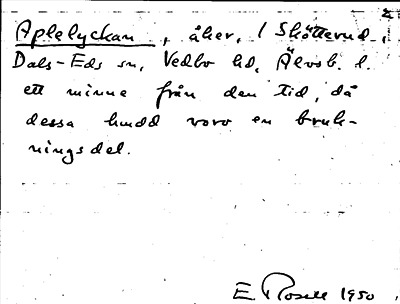 Aplelyckan, åker, / Skötterud,
Dals-Eds sn, Vedbo hd, Älvsb. l.
ett minne från den tid, då
dessa hudd voro en bruk-
ningsdel.
E Rosell 1950